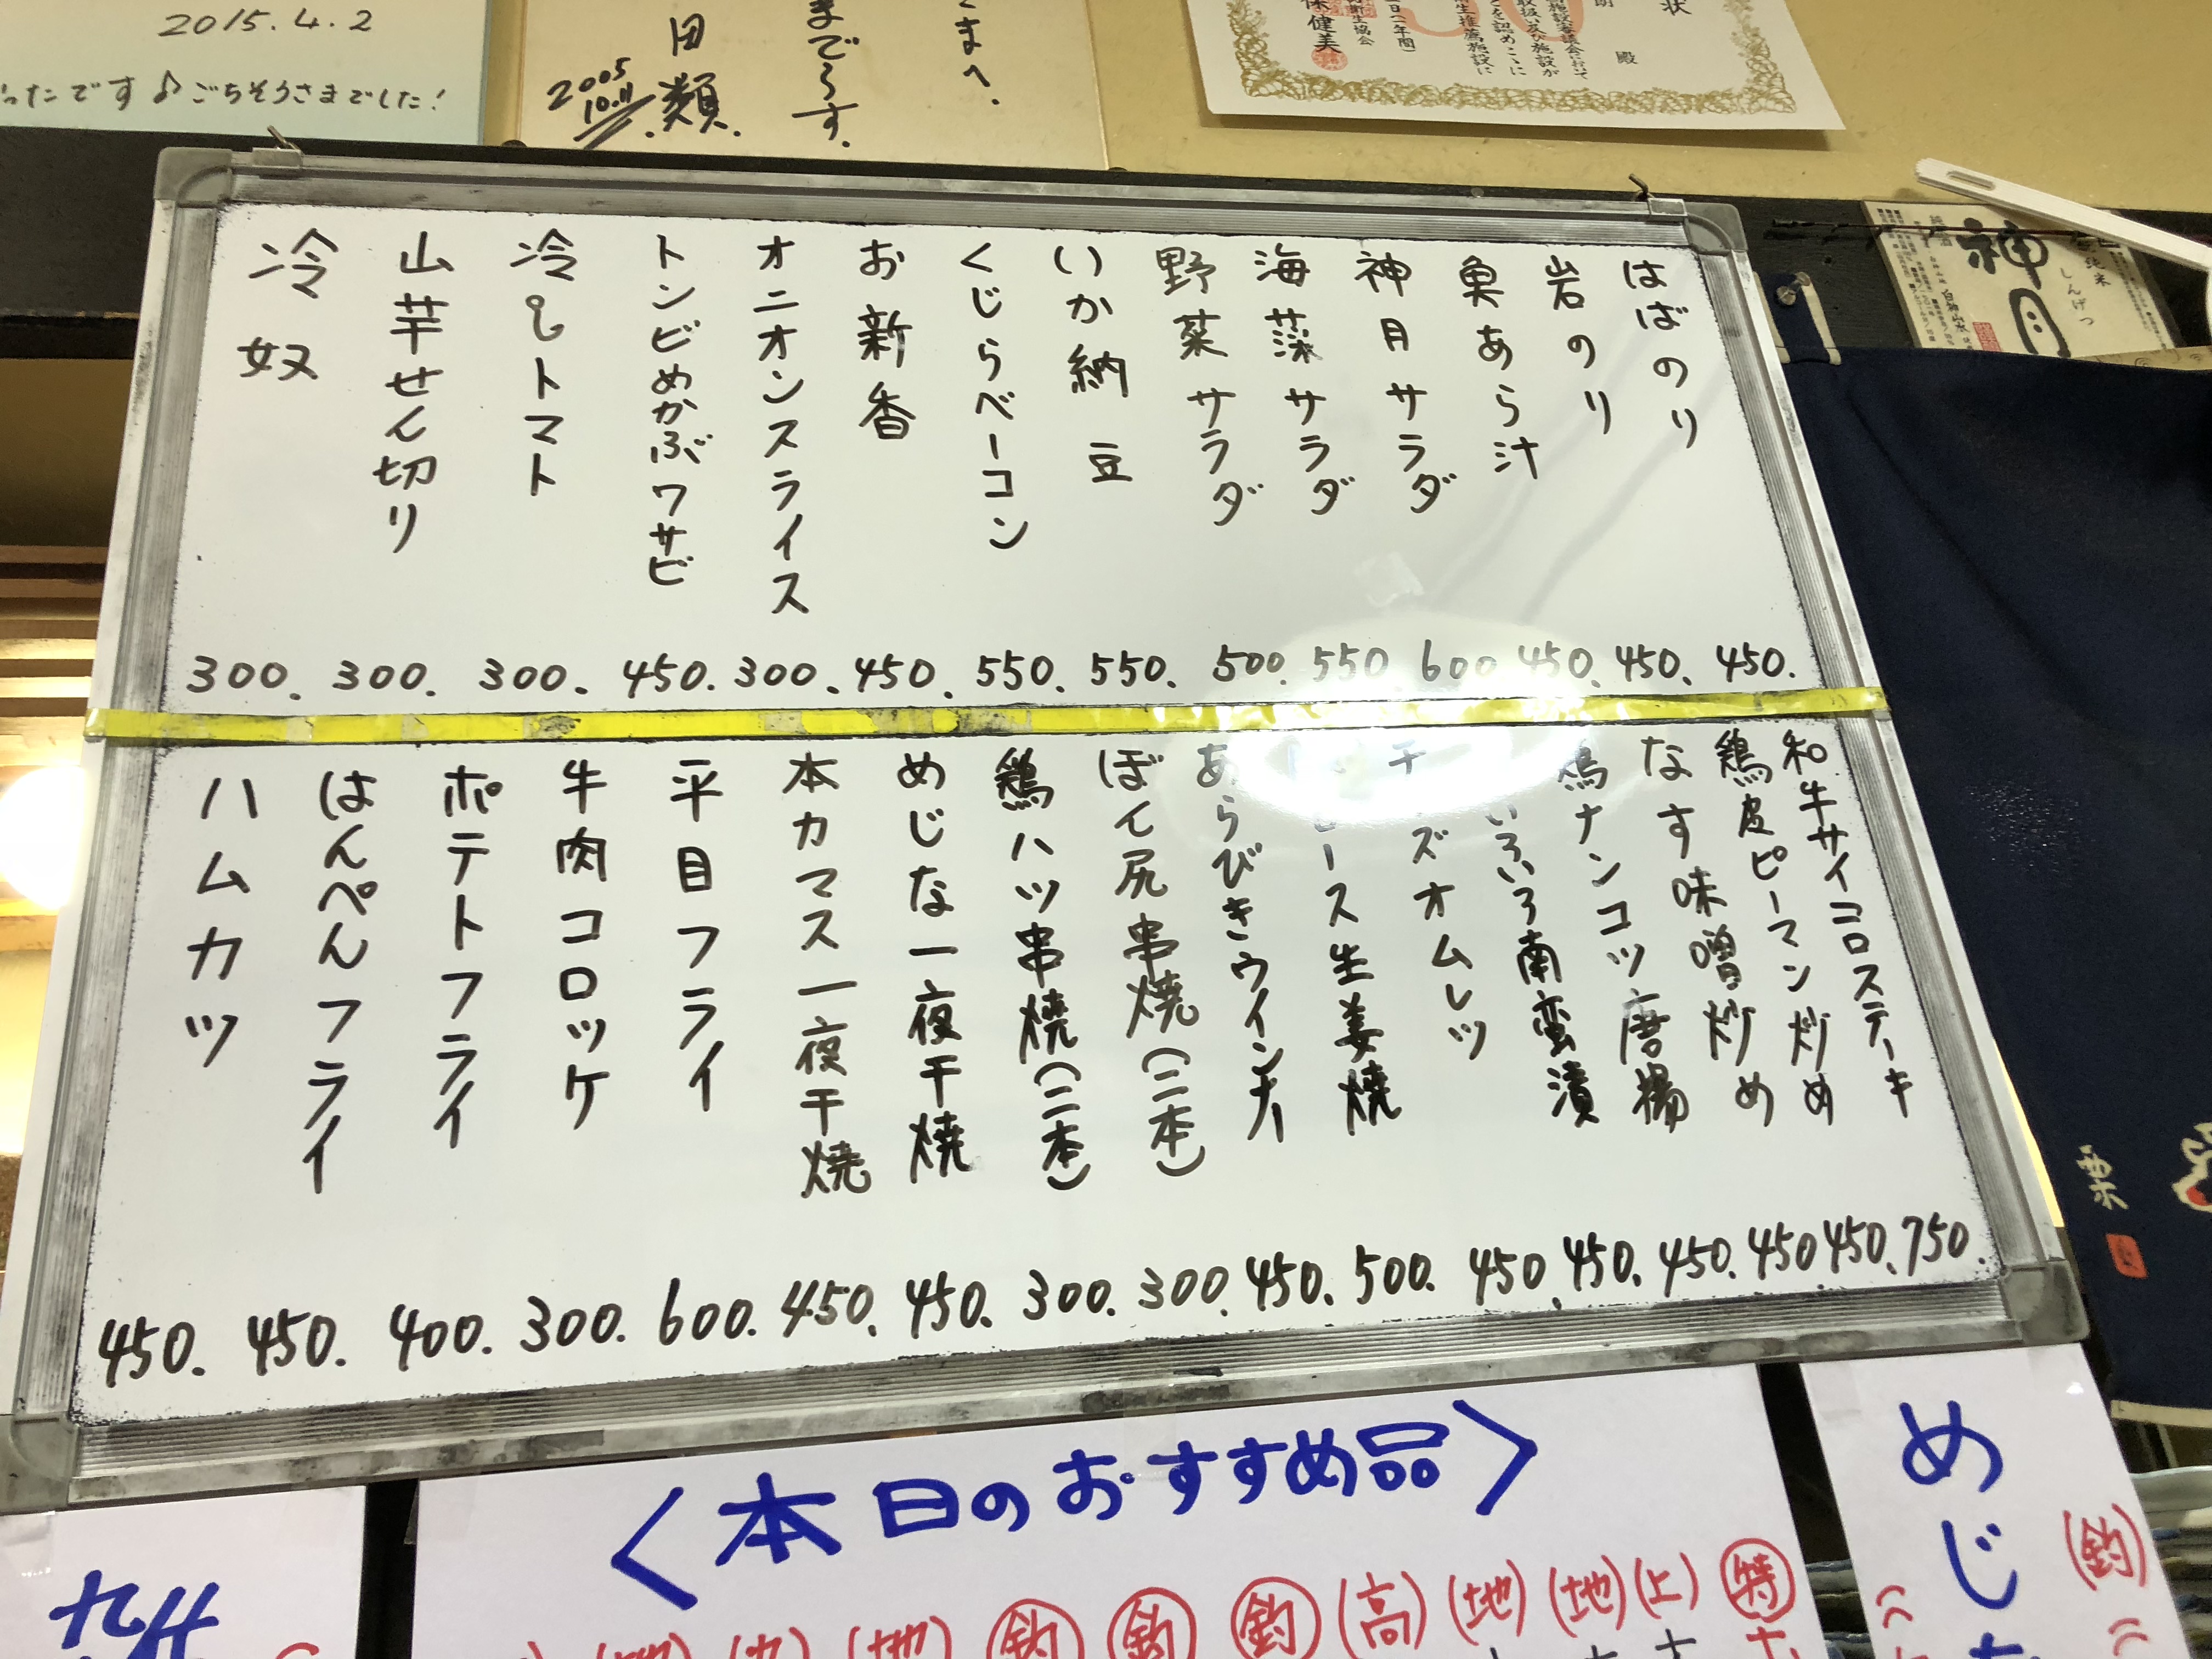 2015.4.2
ったです♪ごちそうさまでした!
さまへ.
までらす.
田類.
2005
10.11
状
殿
保健美
神月
しんげつ
純米
はばのり 450.
岩のり 450.
魚あら汁 450.
神月サラダ 600
海藻サラダ 550.
野菜サラダ 500.
いか納豆 550.
くじらベーコン 550.
お新香 450.
オニオンスライス 300.
トンビめかぶワサビ 450.
冷しトマト 300.
山芋せん切り 300.
冷奴 300.
和牛サイコロステーキ 750.
鶏皮ピーマン炒め 450.
なす味噌炒め 450
鶏ナンコツ唐揚 450.
いろいろ南蛮漬 450.
チーズオムレツ 450.
ース生姜焼 500.
あらびきウインナー 450.
ぼん尻串焼(二本) 300.
鶏ハツ串焼(二本) 300.
めじな一夜干焼 450.
本カマス一夜干焼 450.
平目フライ 600.
牛肉コロッケ 300.
ポテトフライ 400.
はんぺんフライ 450.
ハムカツ 450.
栗
<本日のおすすめ品>
特
(上)
(地)
(地)
(高)
釣
釣
釣
(地)
めじ
(釣)
九